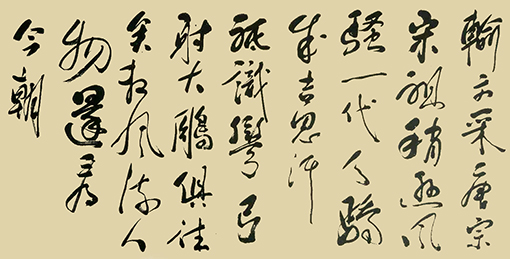 輸文采唐宗
宋祖稍遜風
騷一代天驕
成吉思汗
祇識彎弓
射大鵰俱往
矣數風流人
物還看
今朝